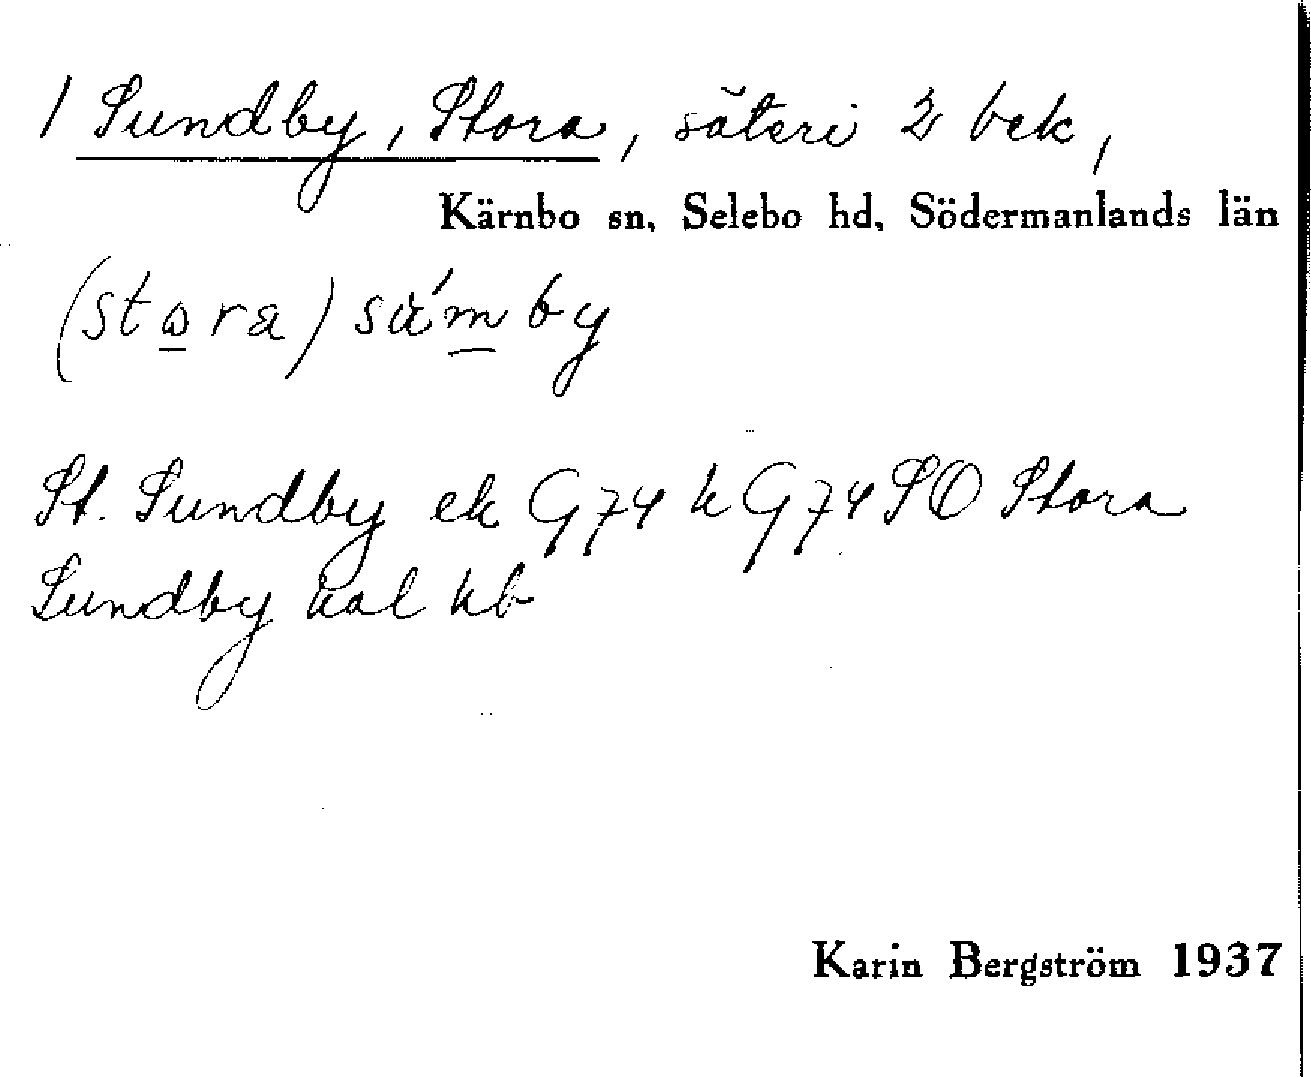 1 Sundby, Stora, säteri 2 bek,
Kärnbo sn, Selebo hd, Södermanlands län
(stωra) sú̀mby
St. Sundby ek G74 k G74 SO Stora
Sundby kal kb
Karin Bergström 1937